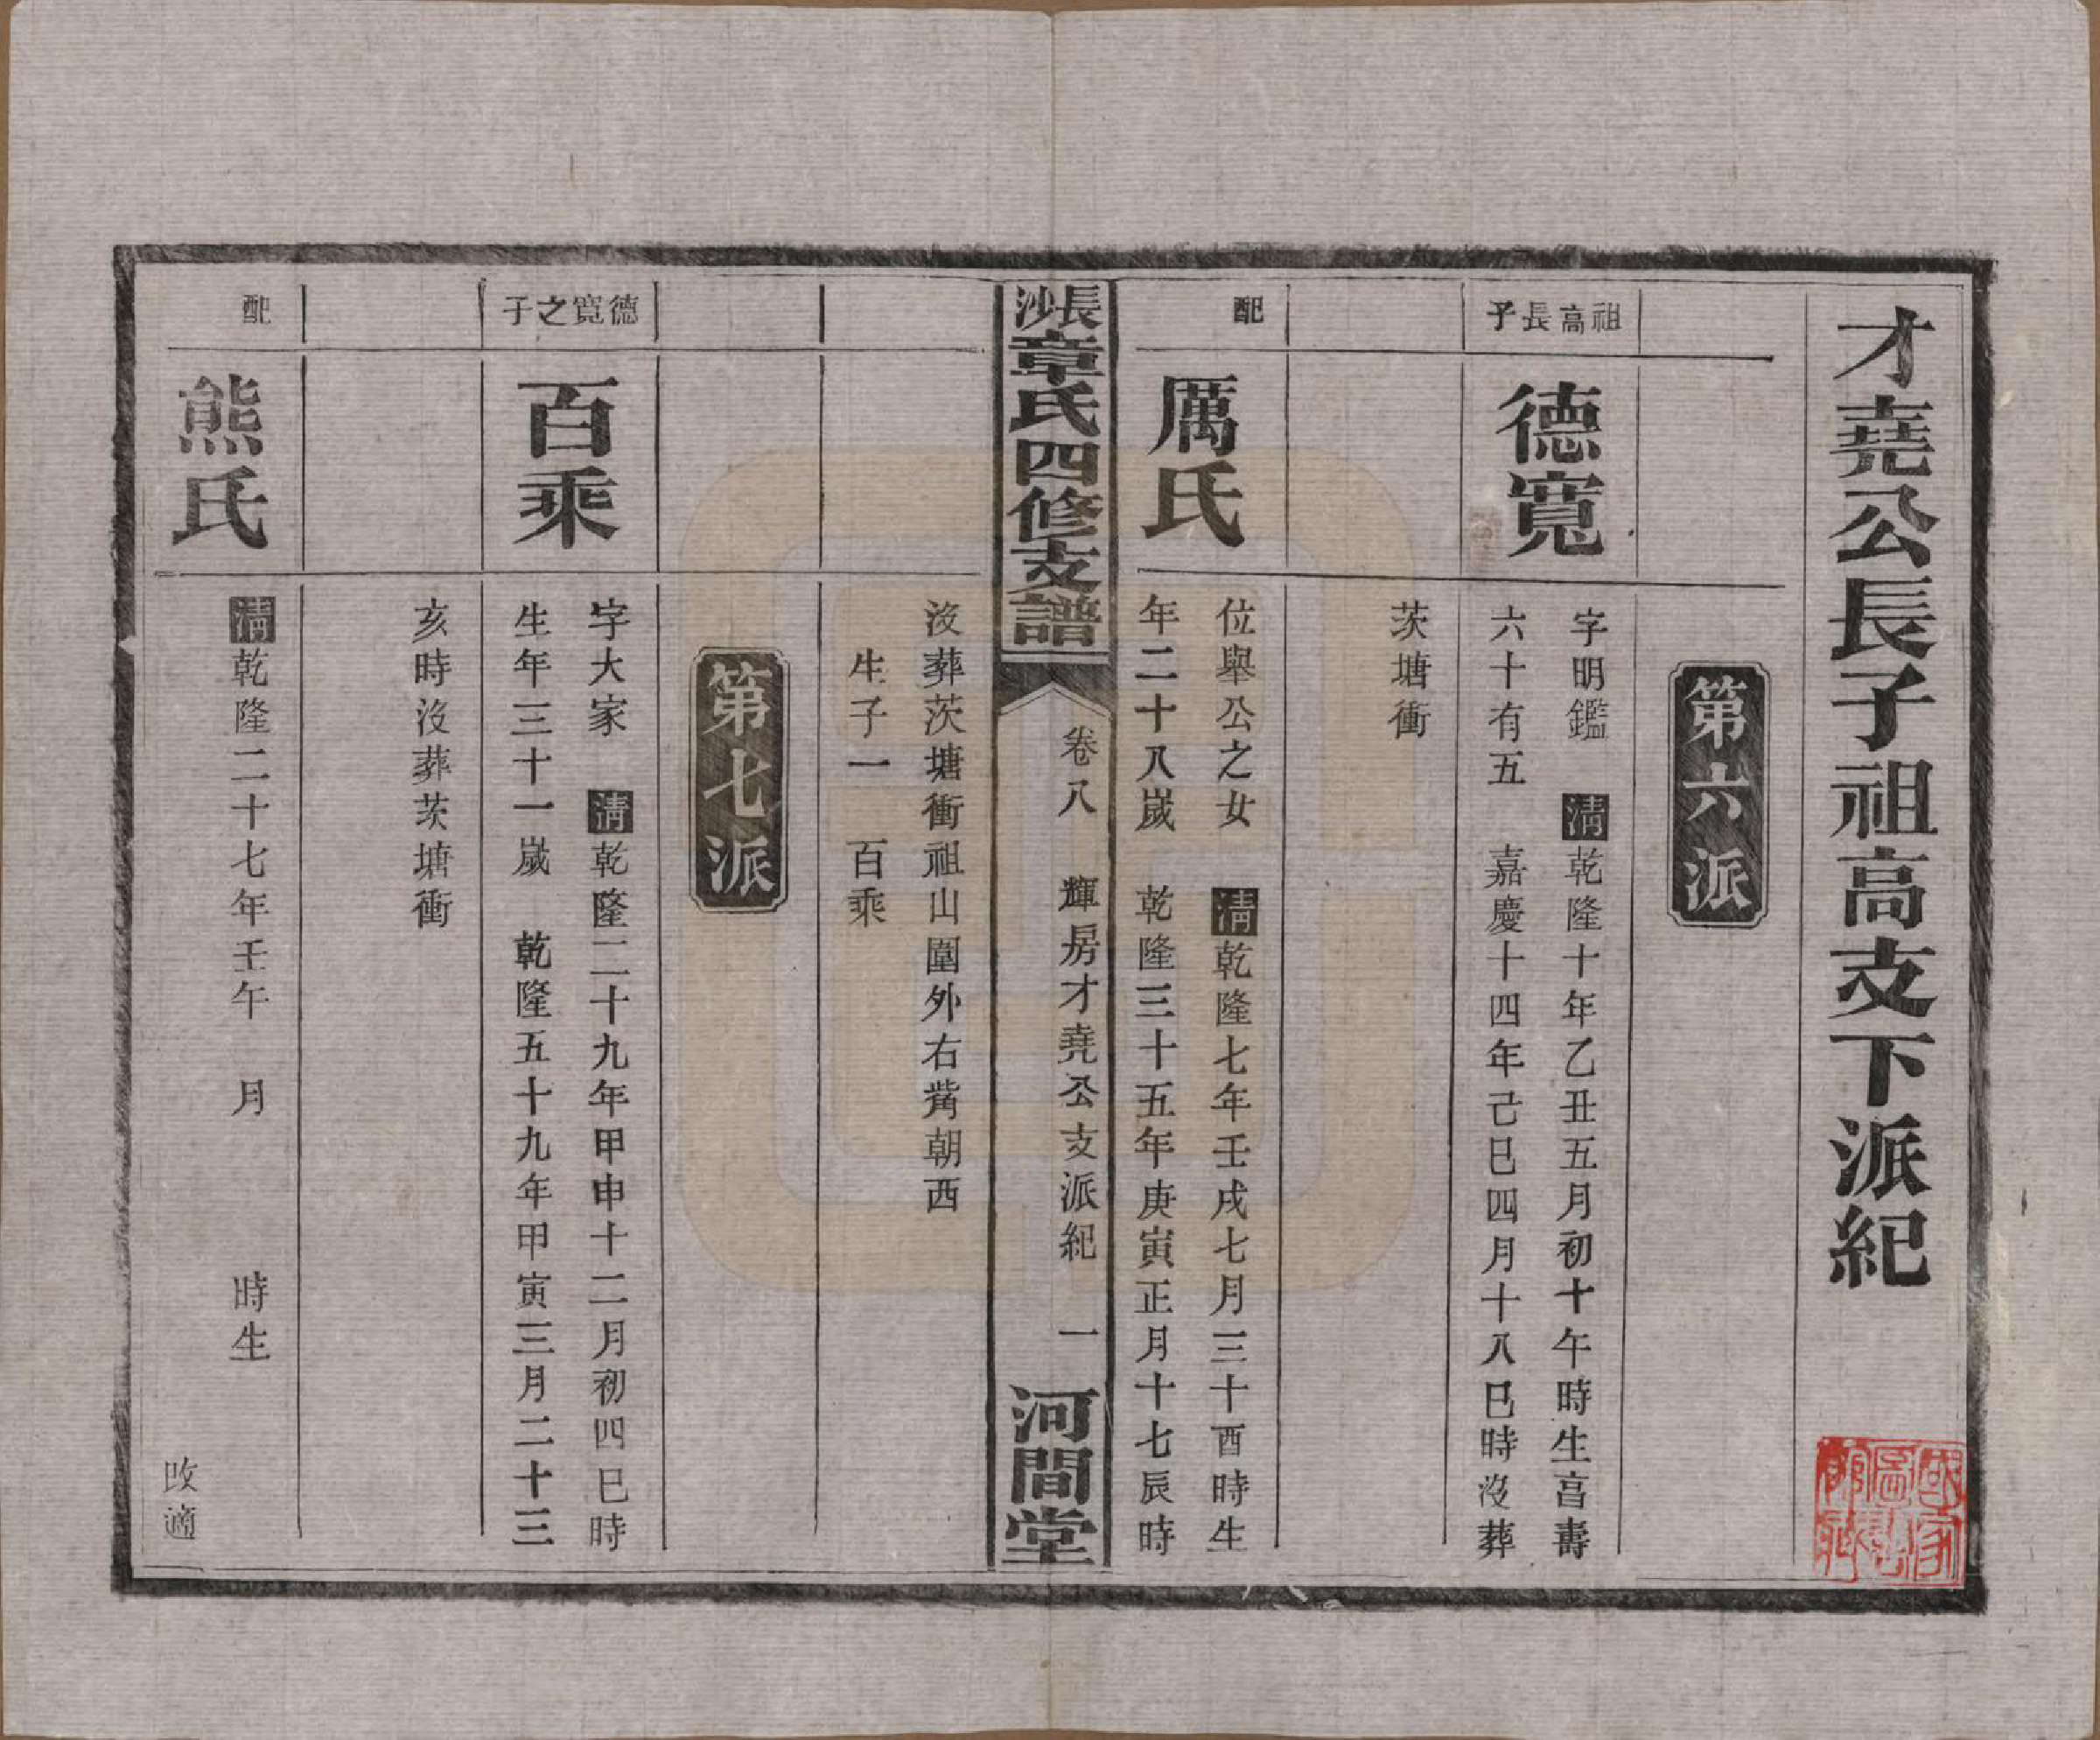 才堯公長子祖高支下派紀
第六派
祖高長子
德寬
字明鑑　清乾隆十年乙丑五月初十午時生亯壽
六十有五　嘉慶十四年己巳四月十八巳時沒葬
茨塘衝
配
厲氏
位舉公之女　清乾隆七年壬戌七月三十酉時生
年二十八歲　乾隆三十五年庚寅正月十七辰時
長沙章氏四修支譜
卷八　輝房才堯公支派紀　一
河間堂
沒葬茨塘衝祖山圍外右觜朝西
生子一　百乘
第七派
德寬之子
百乘
字大家　清乾隆二十九年甲申十二月初四巳時
生年三十一歲　乾隆五十九年甲寅三月二十三
亥時沒葬茨塘衝
配
熊氏
清乾隆二十七年壬午　月　　時生
改適
國家圖書館藏